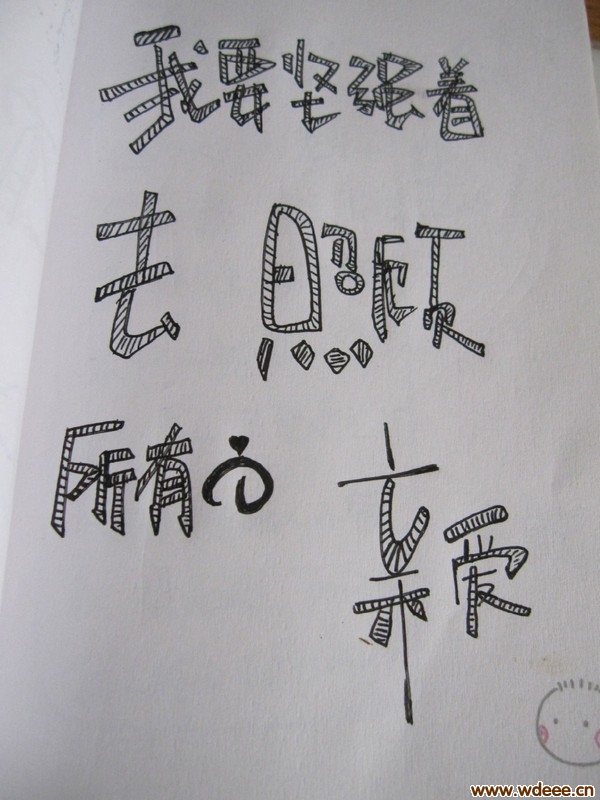 我要坚强着
去照顾
所有的亲爱
www.wdeee.cn